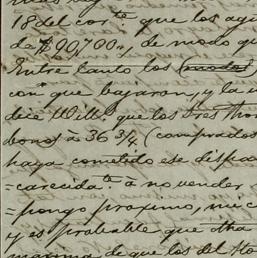 18 del corte. que los agi
de $90,700,,, de modo qu
Entre tanto los
con que bajaron, y la u
dice Will. que los tres Hon
bonos à 36 3/4 (comprados
haya cometido ese dispa
=carecidate. à no vender
=pongo proximo, me c
y es probable que otra
maxima de que los del Ho